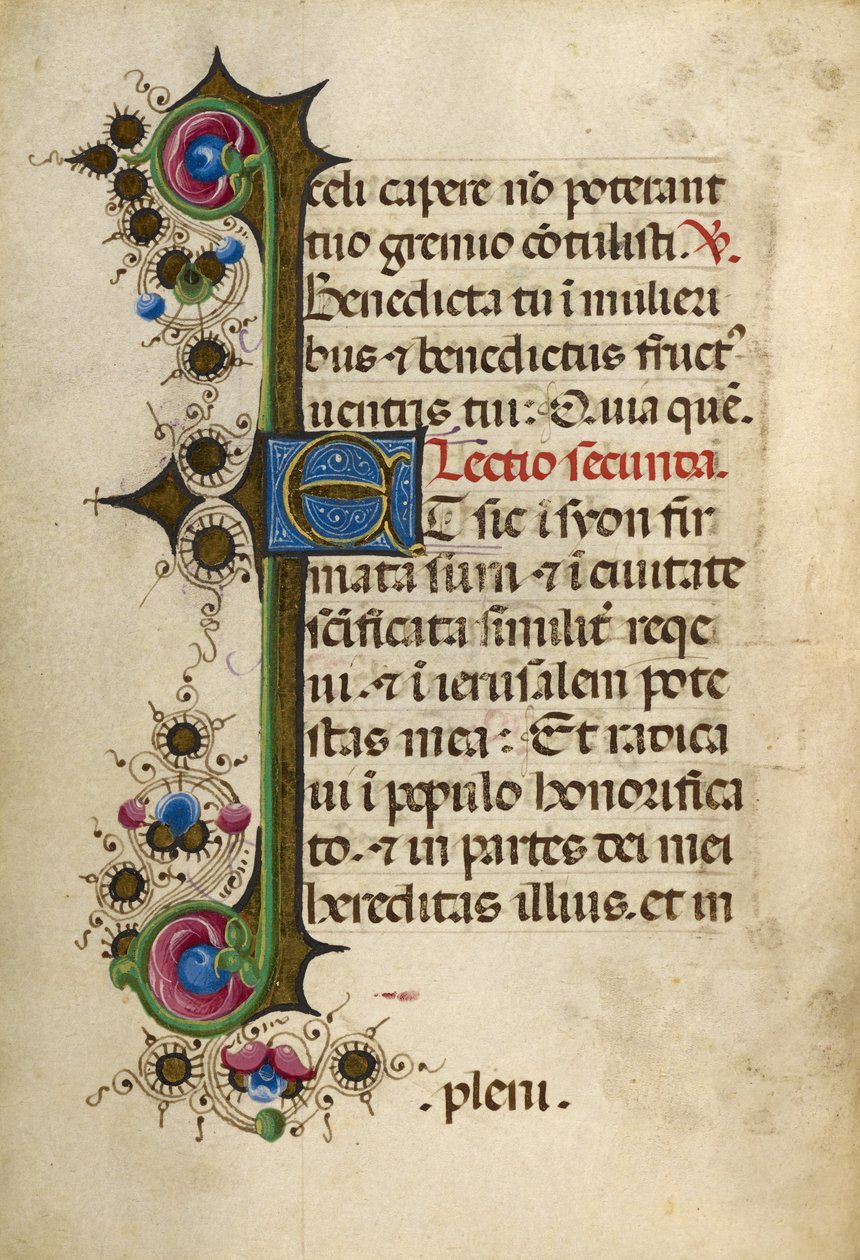 celi capere nō poterant
tuo gremio cōtulisti. ℣.
Benedicta tu ī mulieri
bus ⁊ benedictus fruct⁹
uentris tui: Quia quē.
Lectio secunda.
ET sic ī syon fir
mata sum ⁊ ī ciuitate
sc̄ificata similit̄ reqe
ui. ⁊ ī ierusalem pote
stas mea: Et radica
ui ī populo honorifica
to. ⁊ in partes dei mei
hereditas illius. et in
. pleni .